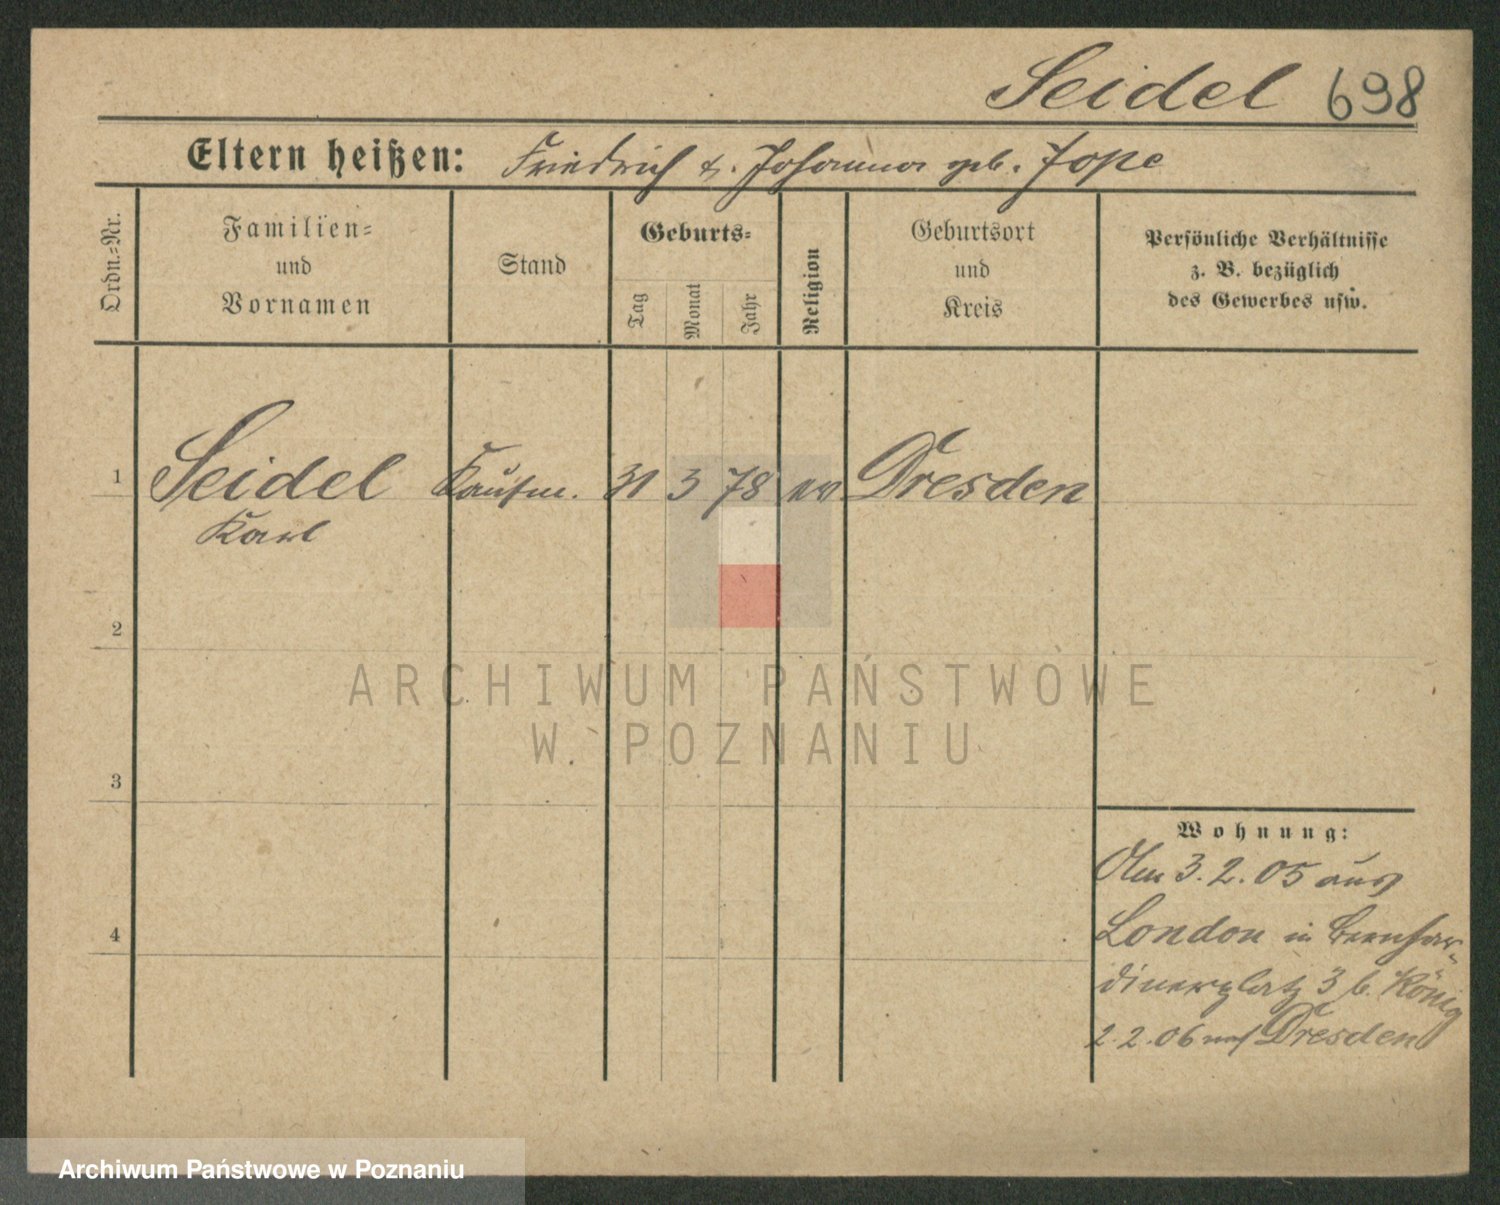 Seidel 698
Eltern heißen: Friedrich u. Johanna geb. Jope
Ordn.-Nr.
Familien-
und
Vornamen
Stand
Geburts-
Tag
Monat
Jahr
Religion
Geburtsort
und
Kreis
Persönliche Verhältnisse
z. B. bezüglich
des Gewerbes usw.
1 Seidel Kaufm. 31 3 78 ev Dresden
Karl
2
ARCHIWUM PAŃSTWOWE
W POZNANIU
3
Wohnung:
Am 3.2.05 aus
4
London in Bernhar-
dinerplatz 3 b. König
2.2.06 nach Dresden
Archiwum Państwowe w Poznaniu